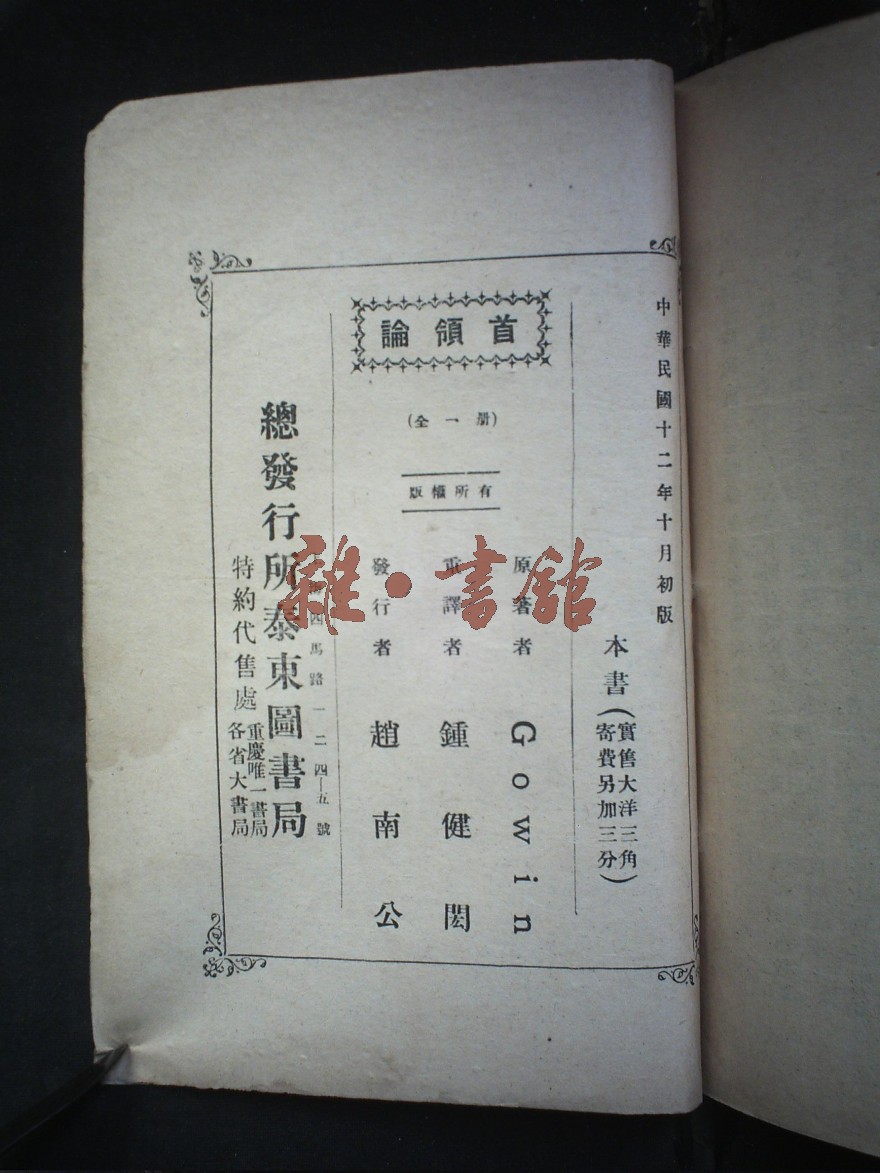 中華民國十二年十月初版
本書(實售大洋三角
寄費另加三分)
首領論
(全一册)
版權所有
原著者 Gowin
重譯者 鍾健閎
發行者 趙南公
上海四馬路一二四—五號
總發行所泰東圖書局
特約代售處
重慶唯一書局
各省大書局
雜·書館